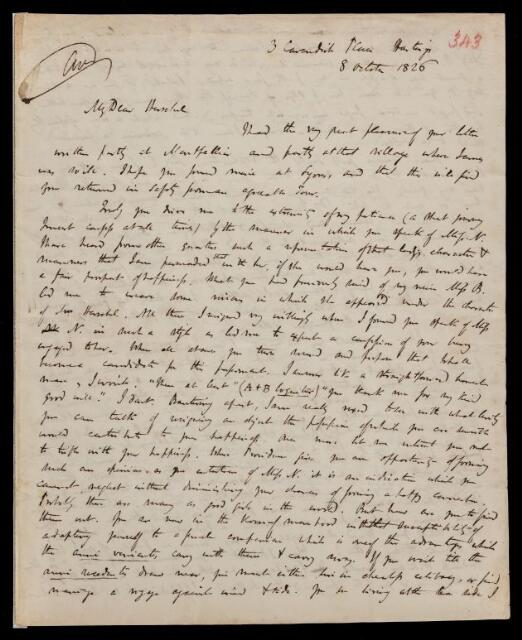 343
3 Cavendish Place Hastings
8 October 1826
My Dear Herschel
I had the very great pleasure of your letter
written partly at Montpellier and partly at that village where James
was write. I hope you found mine at Lyons, and that this will find
you returned in safety from an agreeable Tour.
Truly you drive me to the extremity of my patience (a that
times) by the manner in which you speak of Miss N.
I have heard from other quarters such a representation of that lady's character &
manners that I am persuaded that with her, if she would have you, you would have
a fair prospect of happiness. What you had previously said of my niece Miss B.
led me to weave some visions in which she appeared under the character
of Mrs Herschel. All these I resigned very willingly when I found you speak of Miss
N. in such a style as led me to expect a confession of your being
engaged to her. When all at once you turn round and propose that I shall
become a candidate for the preferment. I answer like a straightforward honest
man, I won't. "Then at last" (A & B loquitur) "you thank me for my kind
good will." I don't. Bantering apart, I am really vexed to see with what levity
you can talk of resigning an object the possession of which you are sensible
would contribute to your happiness. Once more let me entreat you not
to trifle with your happiness. When Providence gives you an opportunity of forming
such an opinion as you entertain of Miss N. it is an indication which you
cannot neglect without diminishing your chances of forming a happy connection.
Probably there are many as good girls in the world. But how are you to find
them out. You are now in the of manhood without
adapting yourself to a future companion which is one of the advantages which
the anni venientes carry with them & carry away. If you wait till the
anni recedentes draw near, you must either live in cheerless celibacy, or find
marriage a voyage against wind & tide. You are living at the time I